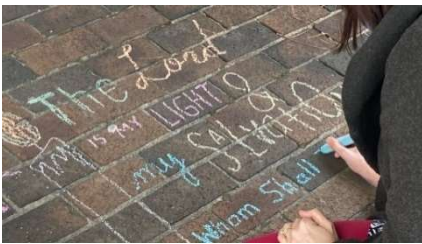 The Lord
is my LIGHT &
my SALVATION
Whom Shall